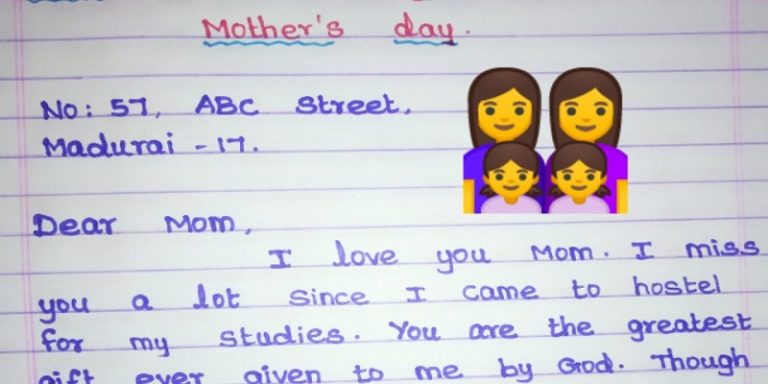 Mother's day.
No: 57, ABC Street,
Madurai - 17.
Dear Mom,
I love you Mom. I miss
you a lot since I came to hostel
for my studies. You are the greatest
gift ever given to me by God. Though